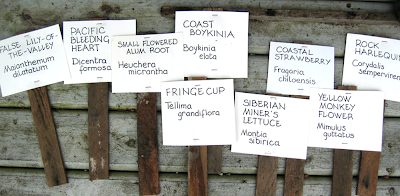 FALSE LILY-OF-
THE-VALLEY
Maianthemum
dilatatum
PACIFIC
BLEEDING
HEART
Dicentra
formosa
SMALL FLOWERED
ALUM ROOT
Heuchera
micrantha
COAST
BOYKINIA
Boykinia
elata
FRINGECUP
Tellima
grandiflora
COASTAL
STRAWBERRY
Fragaria
chiloensis
SIBERIAN
MINER'S
LETTUCE
Montia
sibirica
ROCK
HARLEQUIN
Corydalis
sempervirens
YELLOW
MONKEY
FLOWER
Mimulus
guttatus